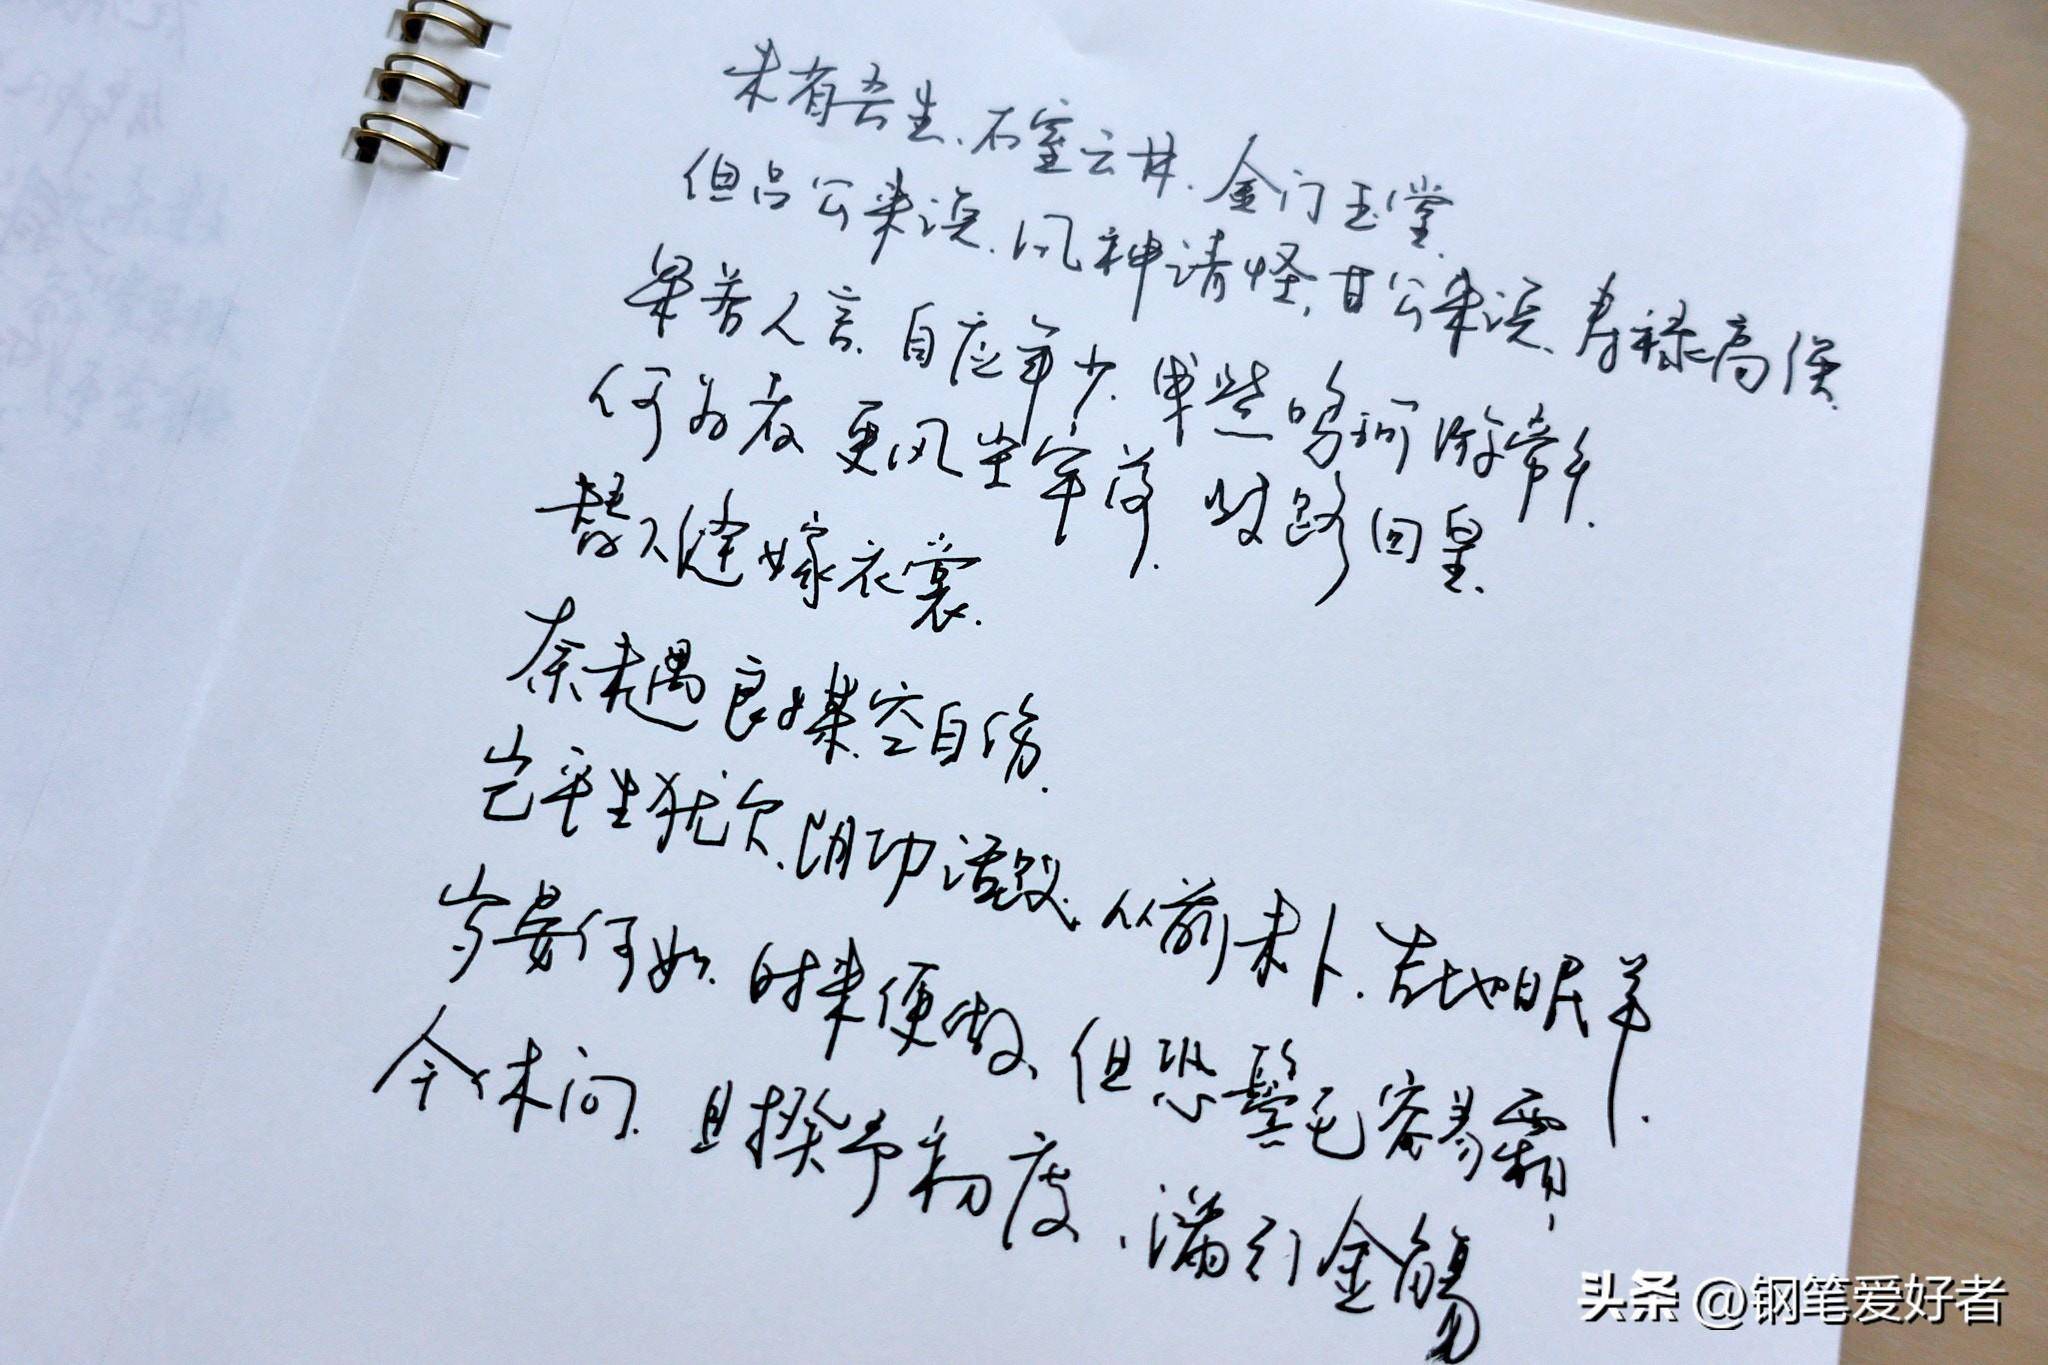 未有吾生、石室云林、金门玉堂.
但吕公来误、风神请怪,甘公来误、寿禄高侯.
果若人言、自应年少、早些鸣珂游帝乡.
何为者 更风尘牢落、歧路回皇.
替人缝嫁衣裳.
奈未遇良媒空自伤.
岂平生犹欠、阴功活蚁、从前未卜、吉地眠羊.
岁晏何如、时来便做、但恐鬓毛容易霜,
今休问、且揆予初度,满引金觞
头条 @钢笔爱好者